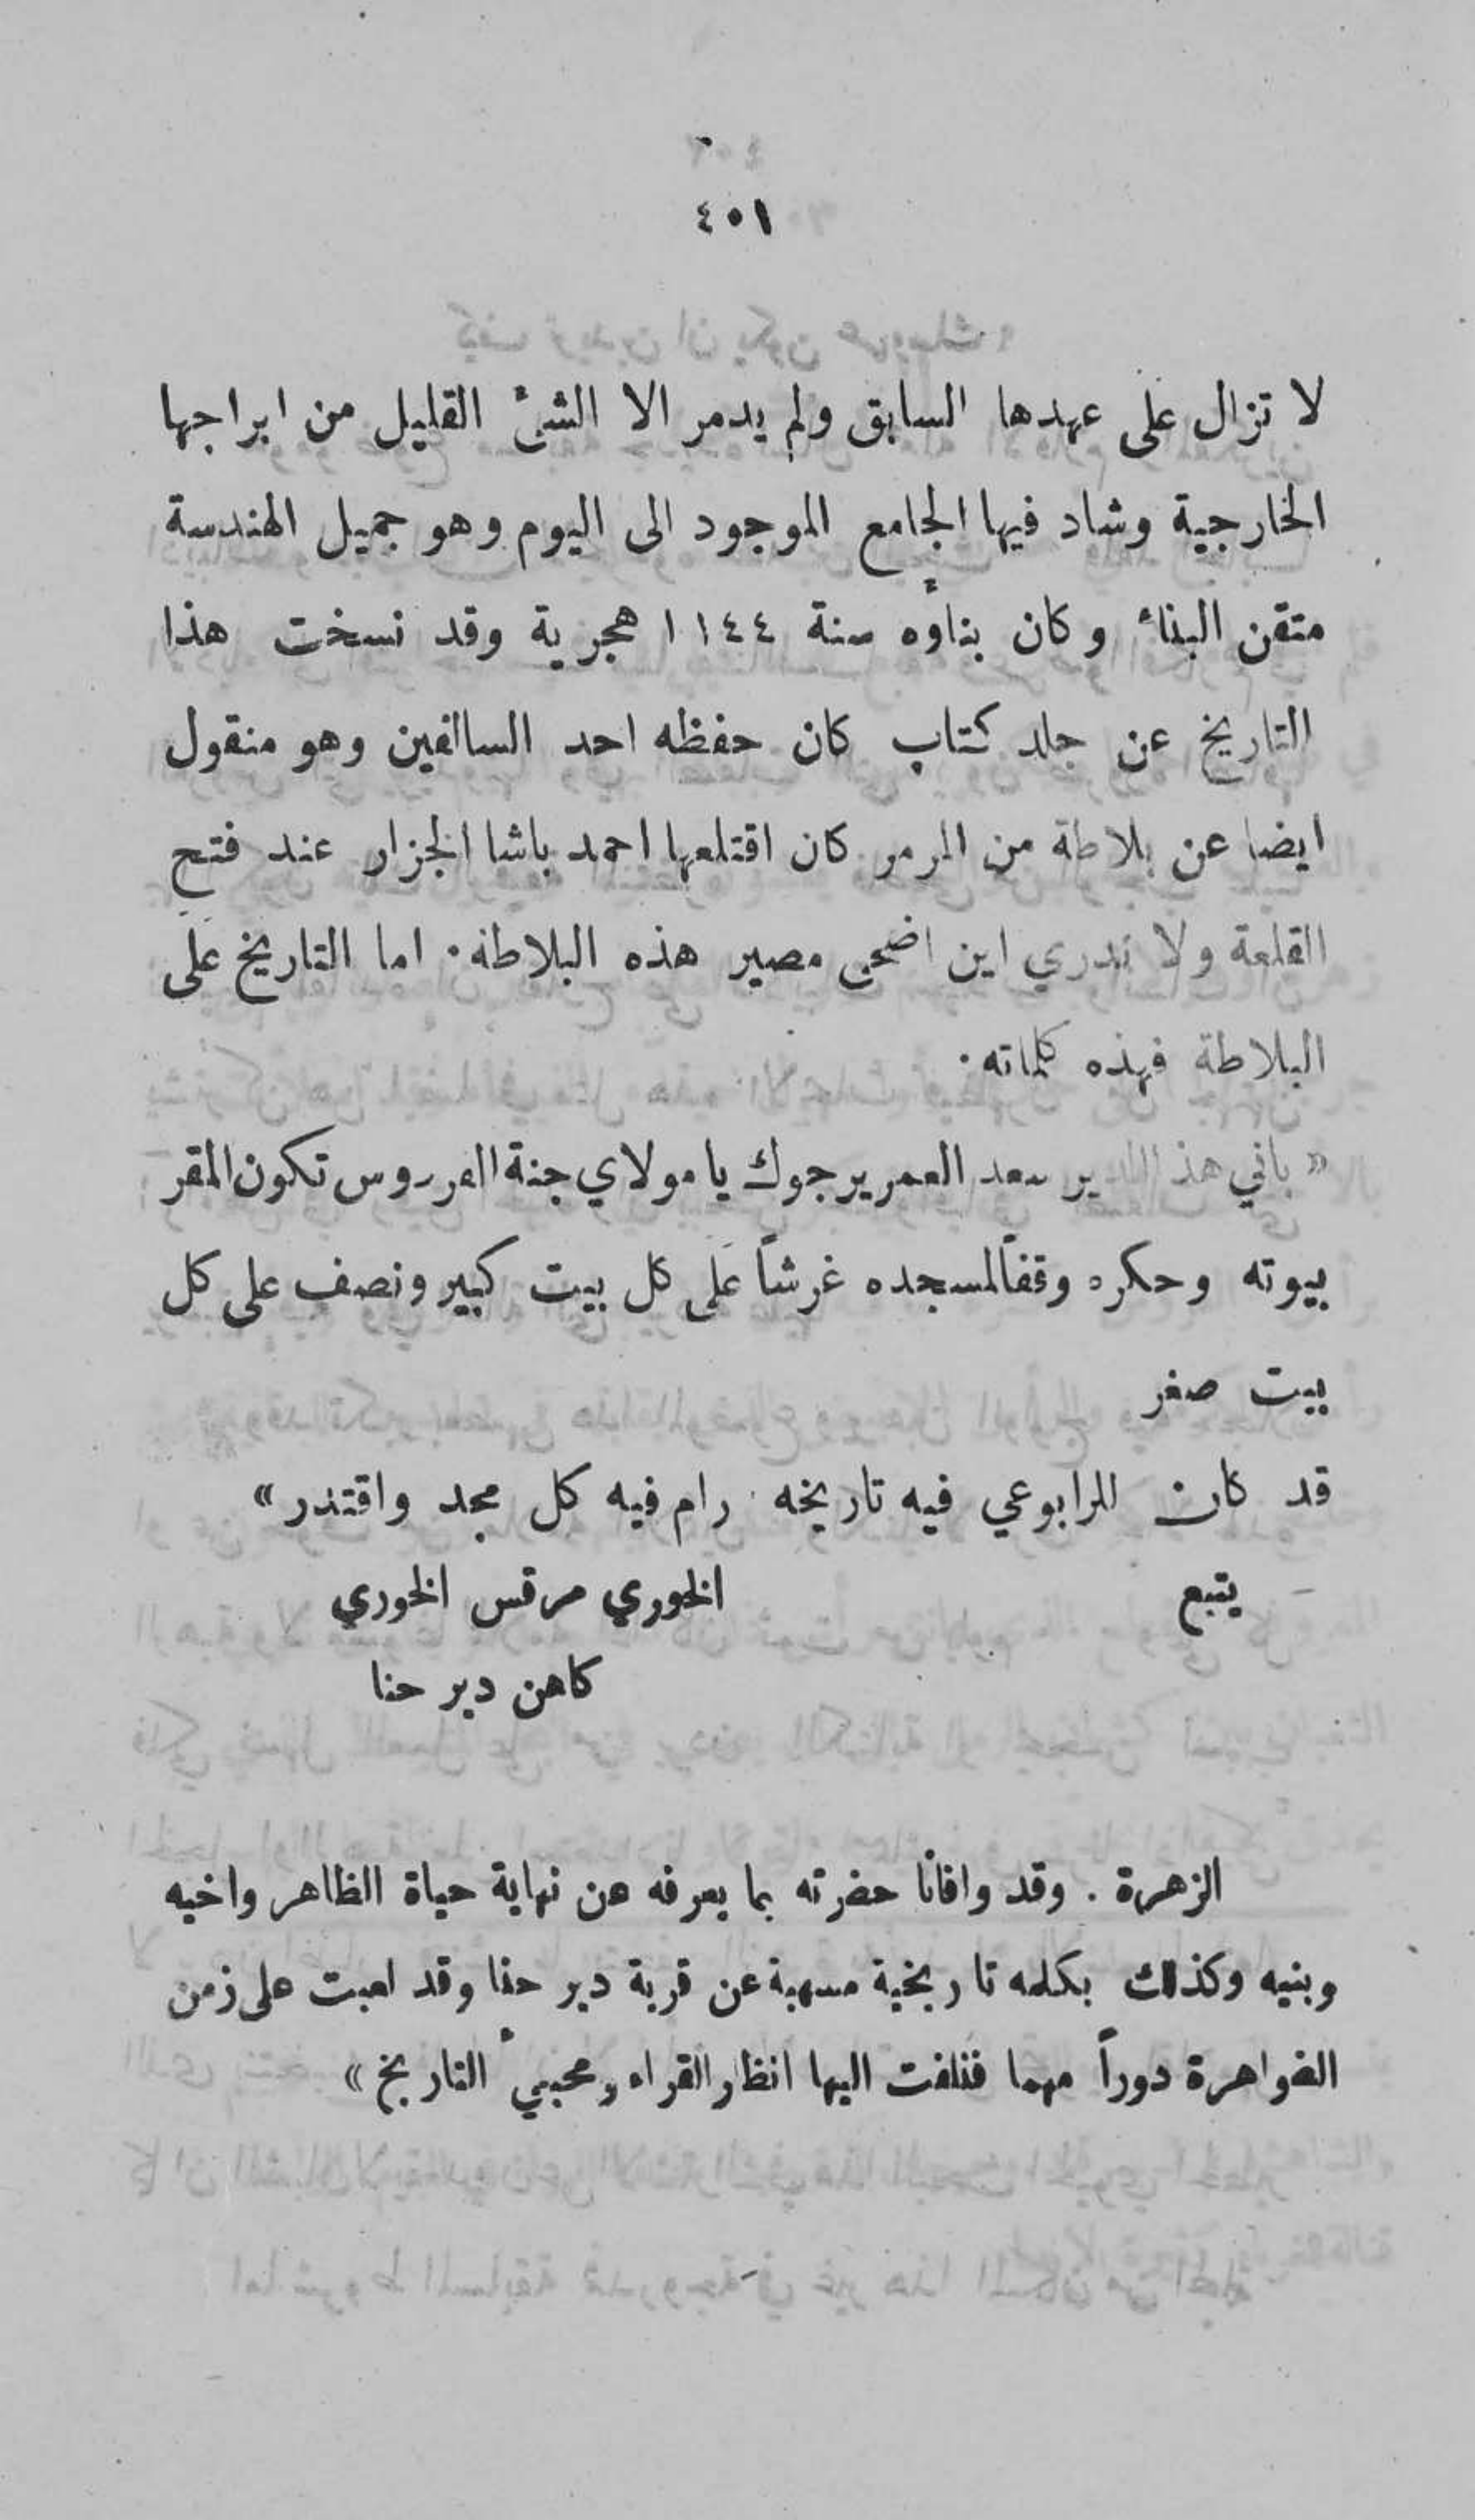 ٤٠١
لا تزال على عهدها السابق ولم يدمر الا الشئ القليل من ابراجها
الخارجية وشاد فيها الجامع الموجود الى اليوم وهو جميل الهندسة
متقن البناء وكان بناؤه سنة ١١٤٤ هجرية وقد نسخت هذا
التاريخ عن جلد كتاب كان حفظه احد السالفين وهو منقول
ايضا عن بلاطة من المرمر كان اقتلعها احمد باشا الجزار عند فتح
القلعة ولا ندري اين اضحى مصير هذه البلاطة. اما التاريخ على
البلاطة فهذه كلماته.
« باني هذا الدير سعد العمر يرجوك يا مولاي جنة الفردوس تكون المقر
بيوته وحكره وقفاً لمسجده غرشاً على كل بيت كبير ونصف على كل
بيت صغر
قد كان المرابوعي فيه تاريخه رام فيه كل مجد واقتدر »
يتبع الخوري مرقس الخوري
كاهن دير حنا
الزهرة . وقد وافانا حضرته بما يعرفه عن نهاية حياة الظاهر واخيه
وبنيه وكذلك بكلمه تاريخية مسهبة عن قرية دير حنا وقد لعبت على زمن
الضواهرة دوراً مهما فنلفت اليها انظار القراء ومحبي التاريخ »